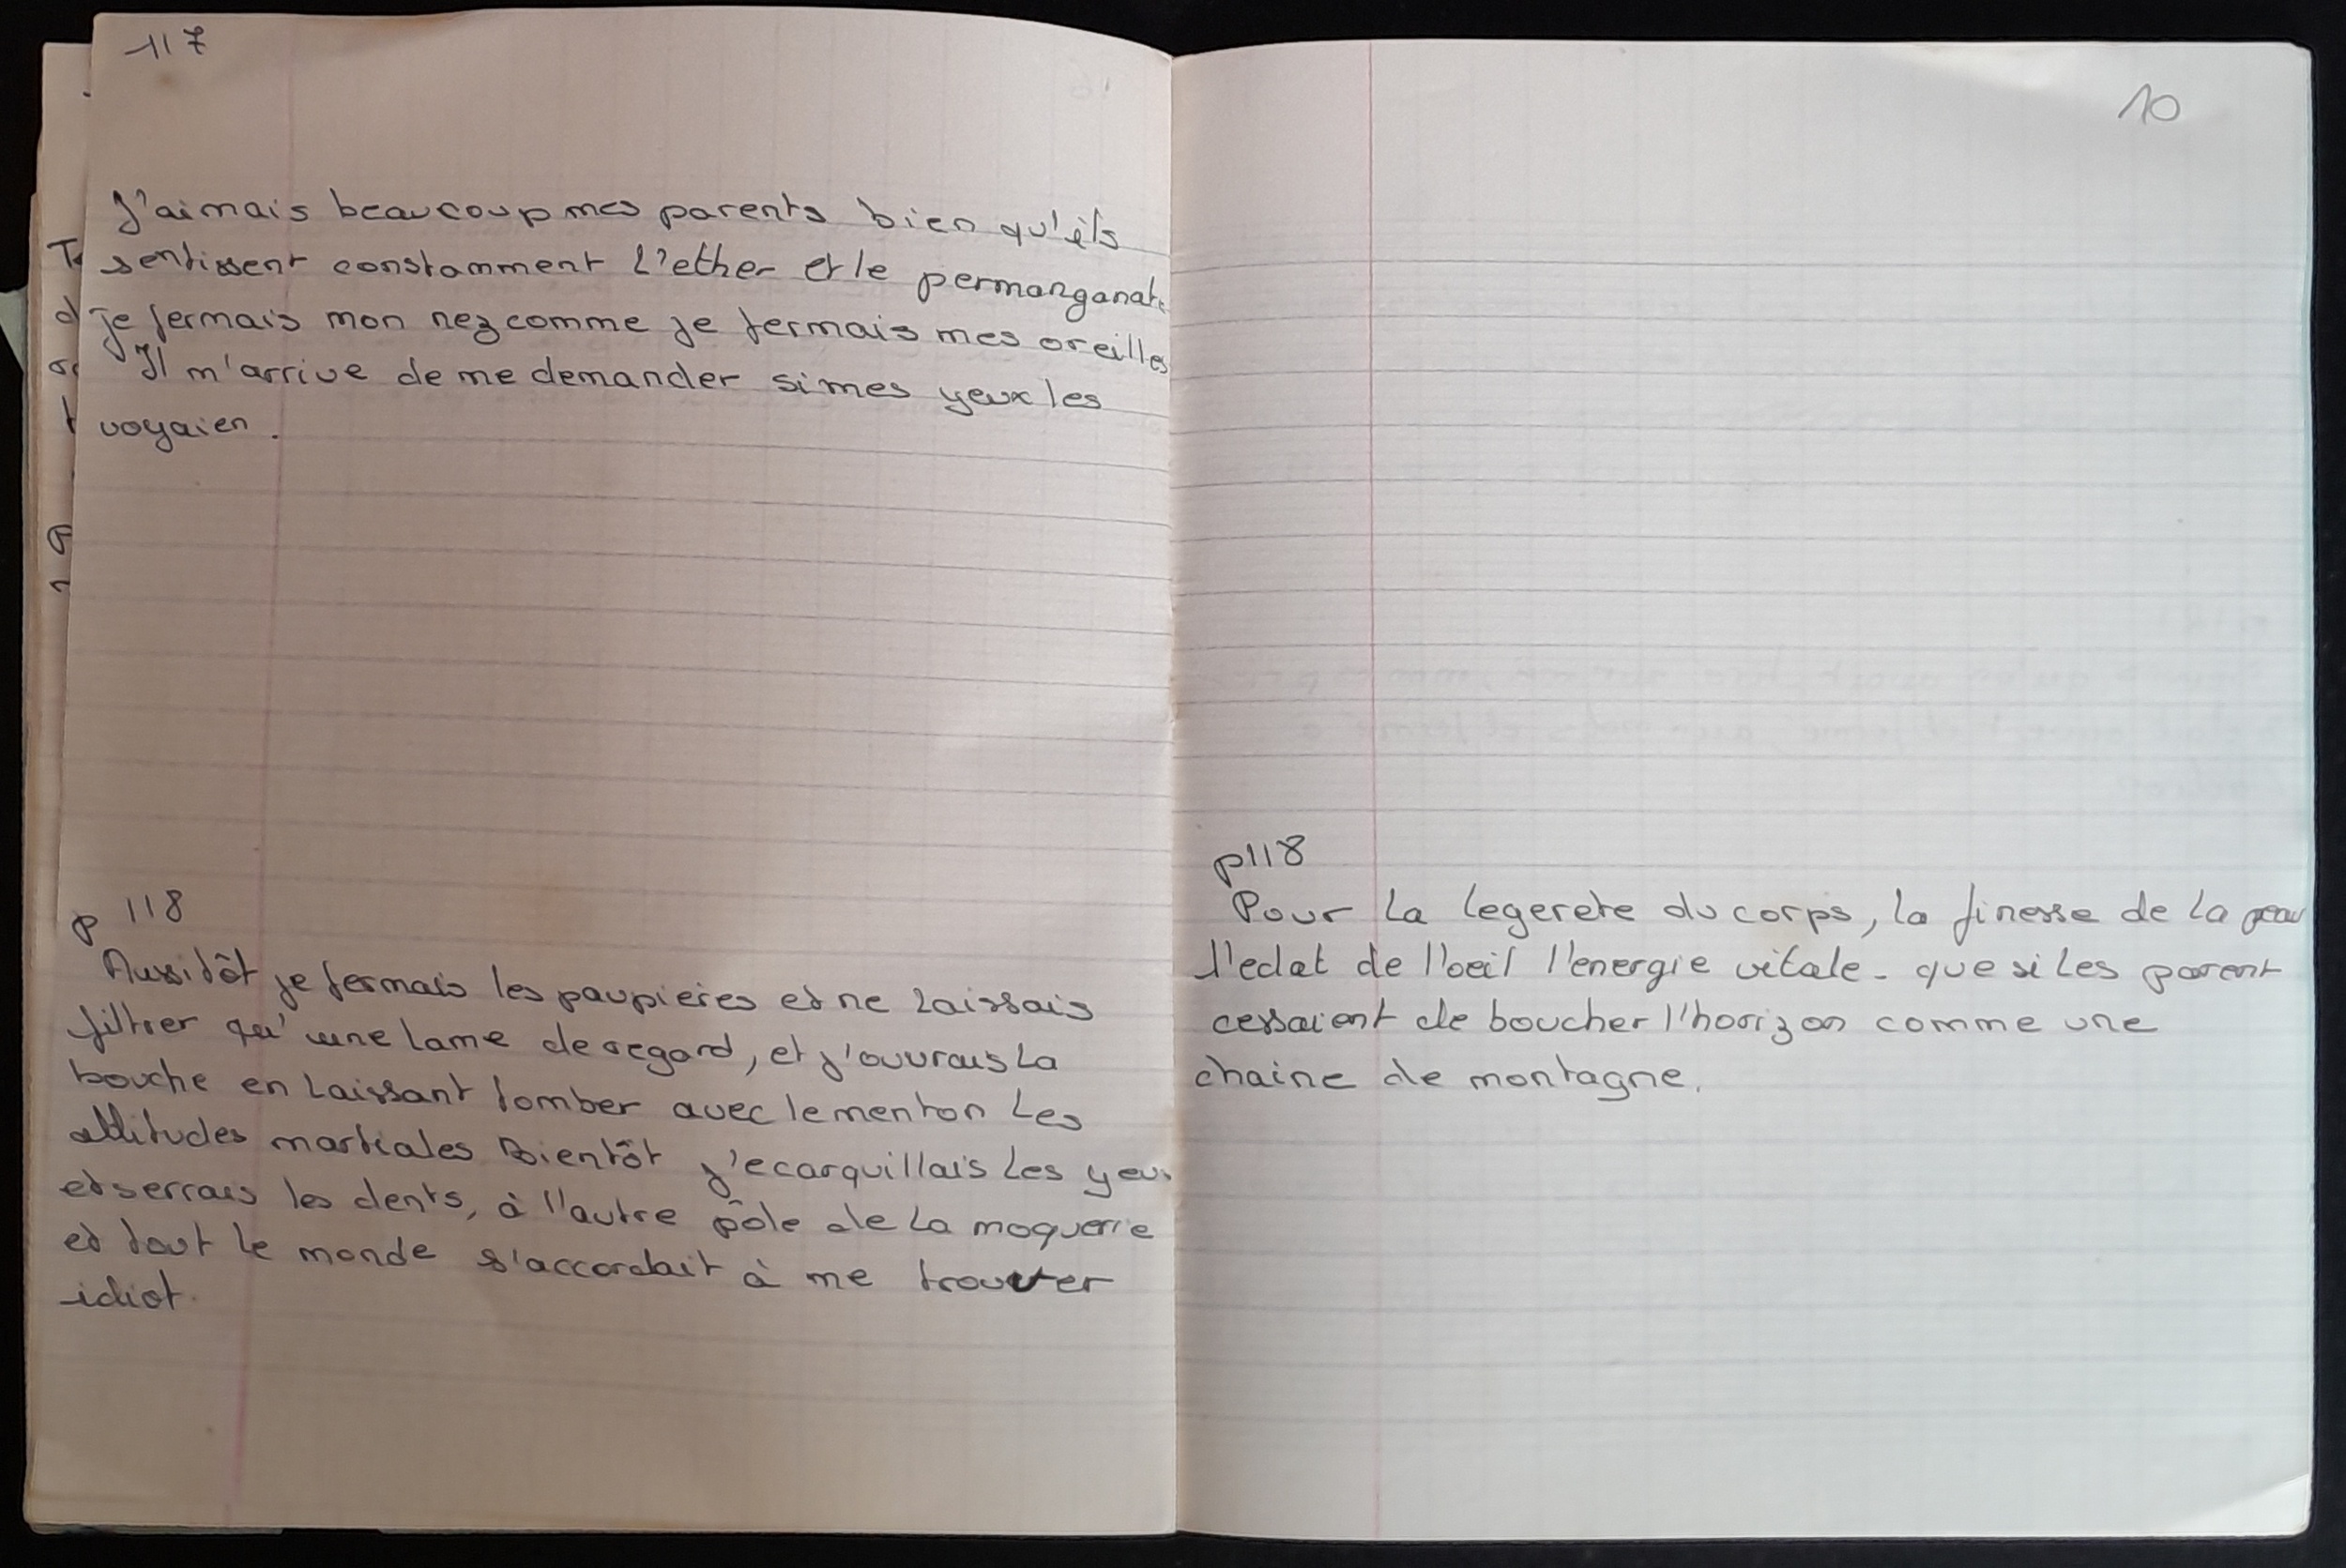 117
J'aimais beaucoup mes parents bien qu'ils
sentissent constamment l'ether et le permanganate
je fermais mon nez comme je fermais mes oreilles
Il m'arrive de me demander si mes yeux les
voyaien.
p 118
Aussitôt je fermais les paupieres et ne laissais
filtrer qu'une lame de regard, et j'ouvrais la
bouche en laissant tomber avec le menton les
attitudes martiales Bientôt j'ecarquillais les yeux
et serrais les dents, à l'autre pôle de la moquerie
et tout le monde s'accordait à me trouver
idiot.
10
p118
Pour la legerete du corps, la finesse de la peau
l'eclat de l'oeil l'energie vitale - que si les parent
cessaient de boucher l'horizon comme une
chaine de montagne.